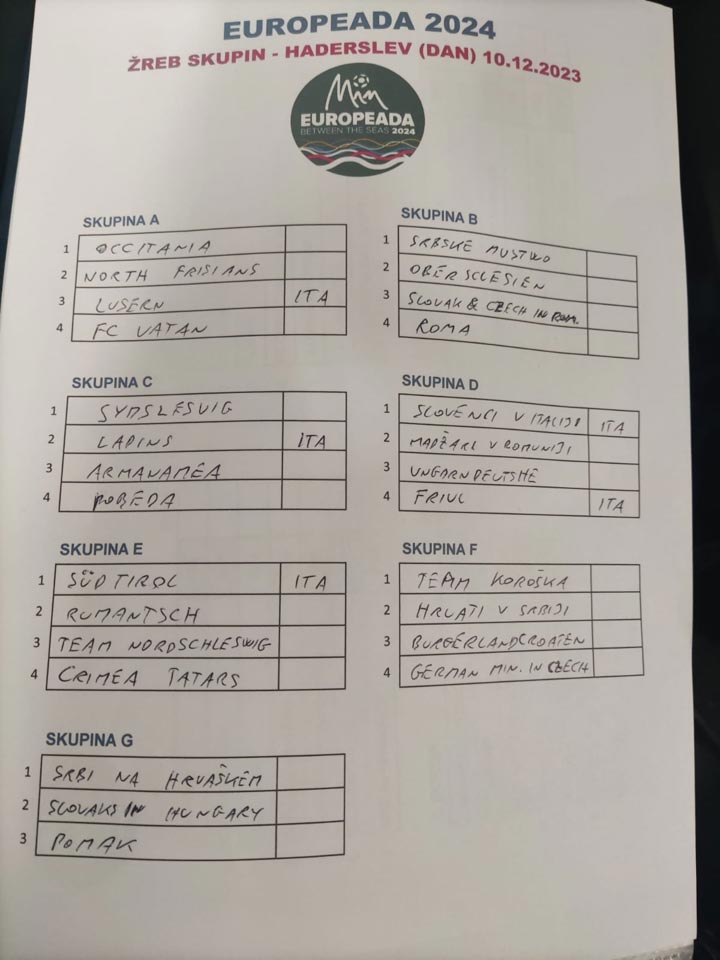 EUROPEADA 2024
ŽREB SKUPIN - HADERSLEV (DAN) 10.12.2023
Min
EUROPEADA
BETWEEN THE SEAS 2024
SKUPINA A
1 OCCITANIA
2 NORTH FRISIANS
3 LUSERN ITA
4 FC VATAN
SKUPINA B
1 SRBSKE MUSTWO
2 OBERSCLESIEN
3 SLOVAK & CZECH IN ROM.
4 ROMA
SKUPINA C
1 SYDSLESVIG
2 LADINS ITA
3 ARMANAMEA
4 POBEDA
SKUPINA D
1 SLOVENCI V ITALIJI ITA
2 MADŽARI V ROMUNIJI
3 UNGARNDEUTSHE
4 FRIUL ITA
SKUPINA E
1 SÜDTIROL ITA
2 RUMANTSCH
3 TEAM NORDSCHLESWIG
4 CRIMEA TATARS
SKUPINA F
1 TEAM KOROŠKA
2 HRVATI V SRBIJI
3 BURGERLANDCROATEN
4 GERMAN MIN. IN CZECH
SKUPINA G
1 SRBI NA HRVAŠKEM
2 SLOVAKS IN HUNGARY
3 POMAK